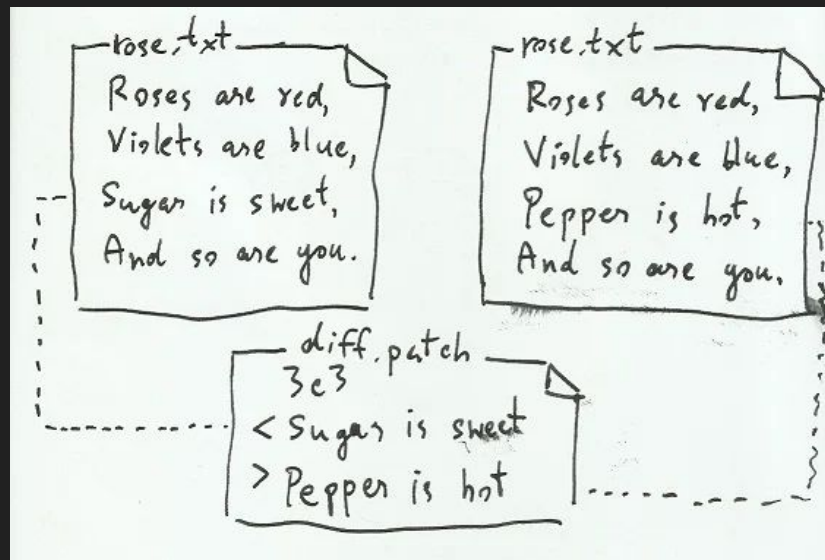 rose.txt
Roses are red,
Violets are blue,
Sugar is sweet,
And so are you.
rose.txt
Roses are red,
Violets are blue,
Pepper is hot,
And so are you.
diff.patch
3c3
< Sugar is sweet
> Pepper is hot